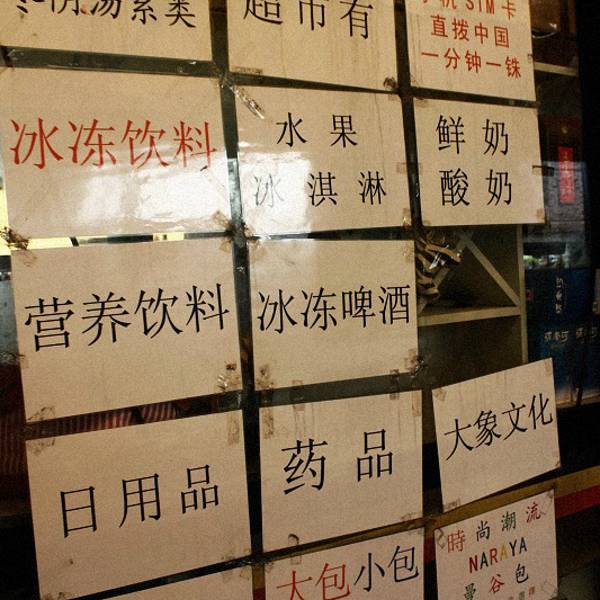 冬阴汤素类
超市有
手机SIM卡
直拨中国
一分钟一铢
冰冻饮料
水果
冰淇淋
鲜奶
酸奶
营养饮料
冰冻啤酒
日用品
药品
大象文化
大包小包
時尚潮流
NARAYA
曼谷包